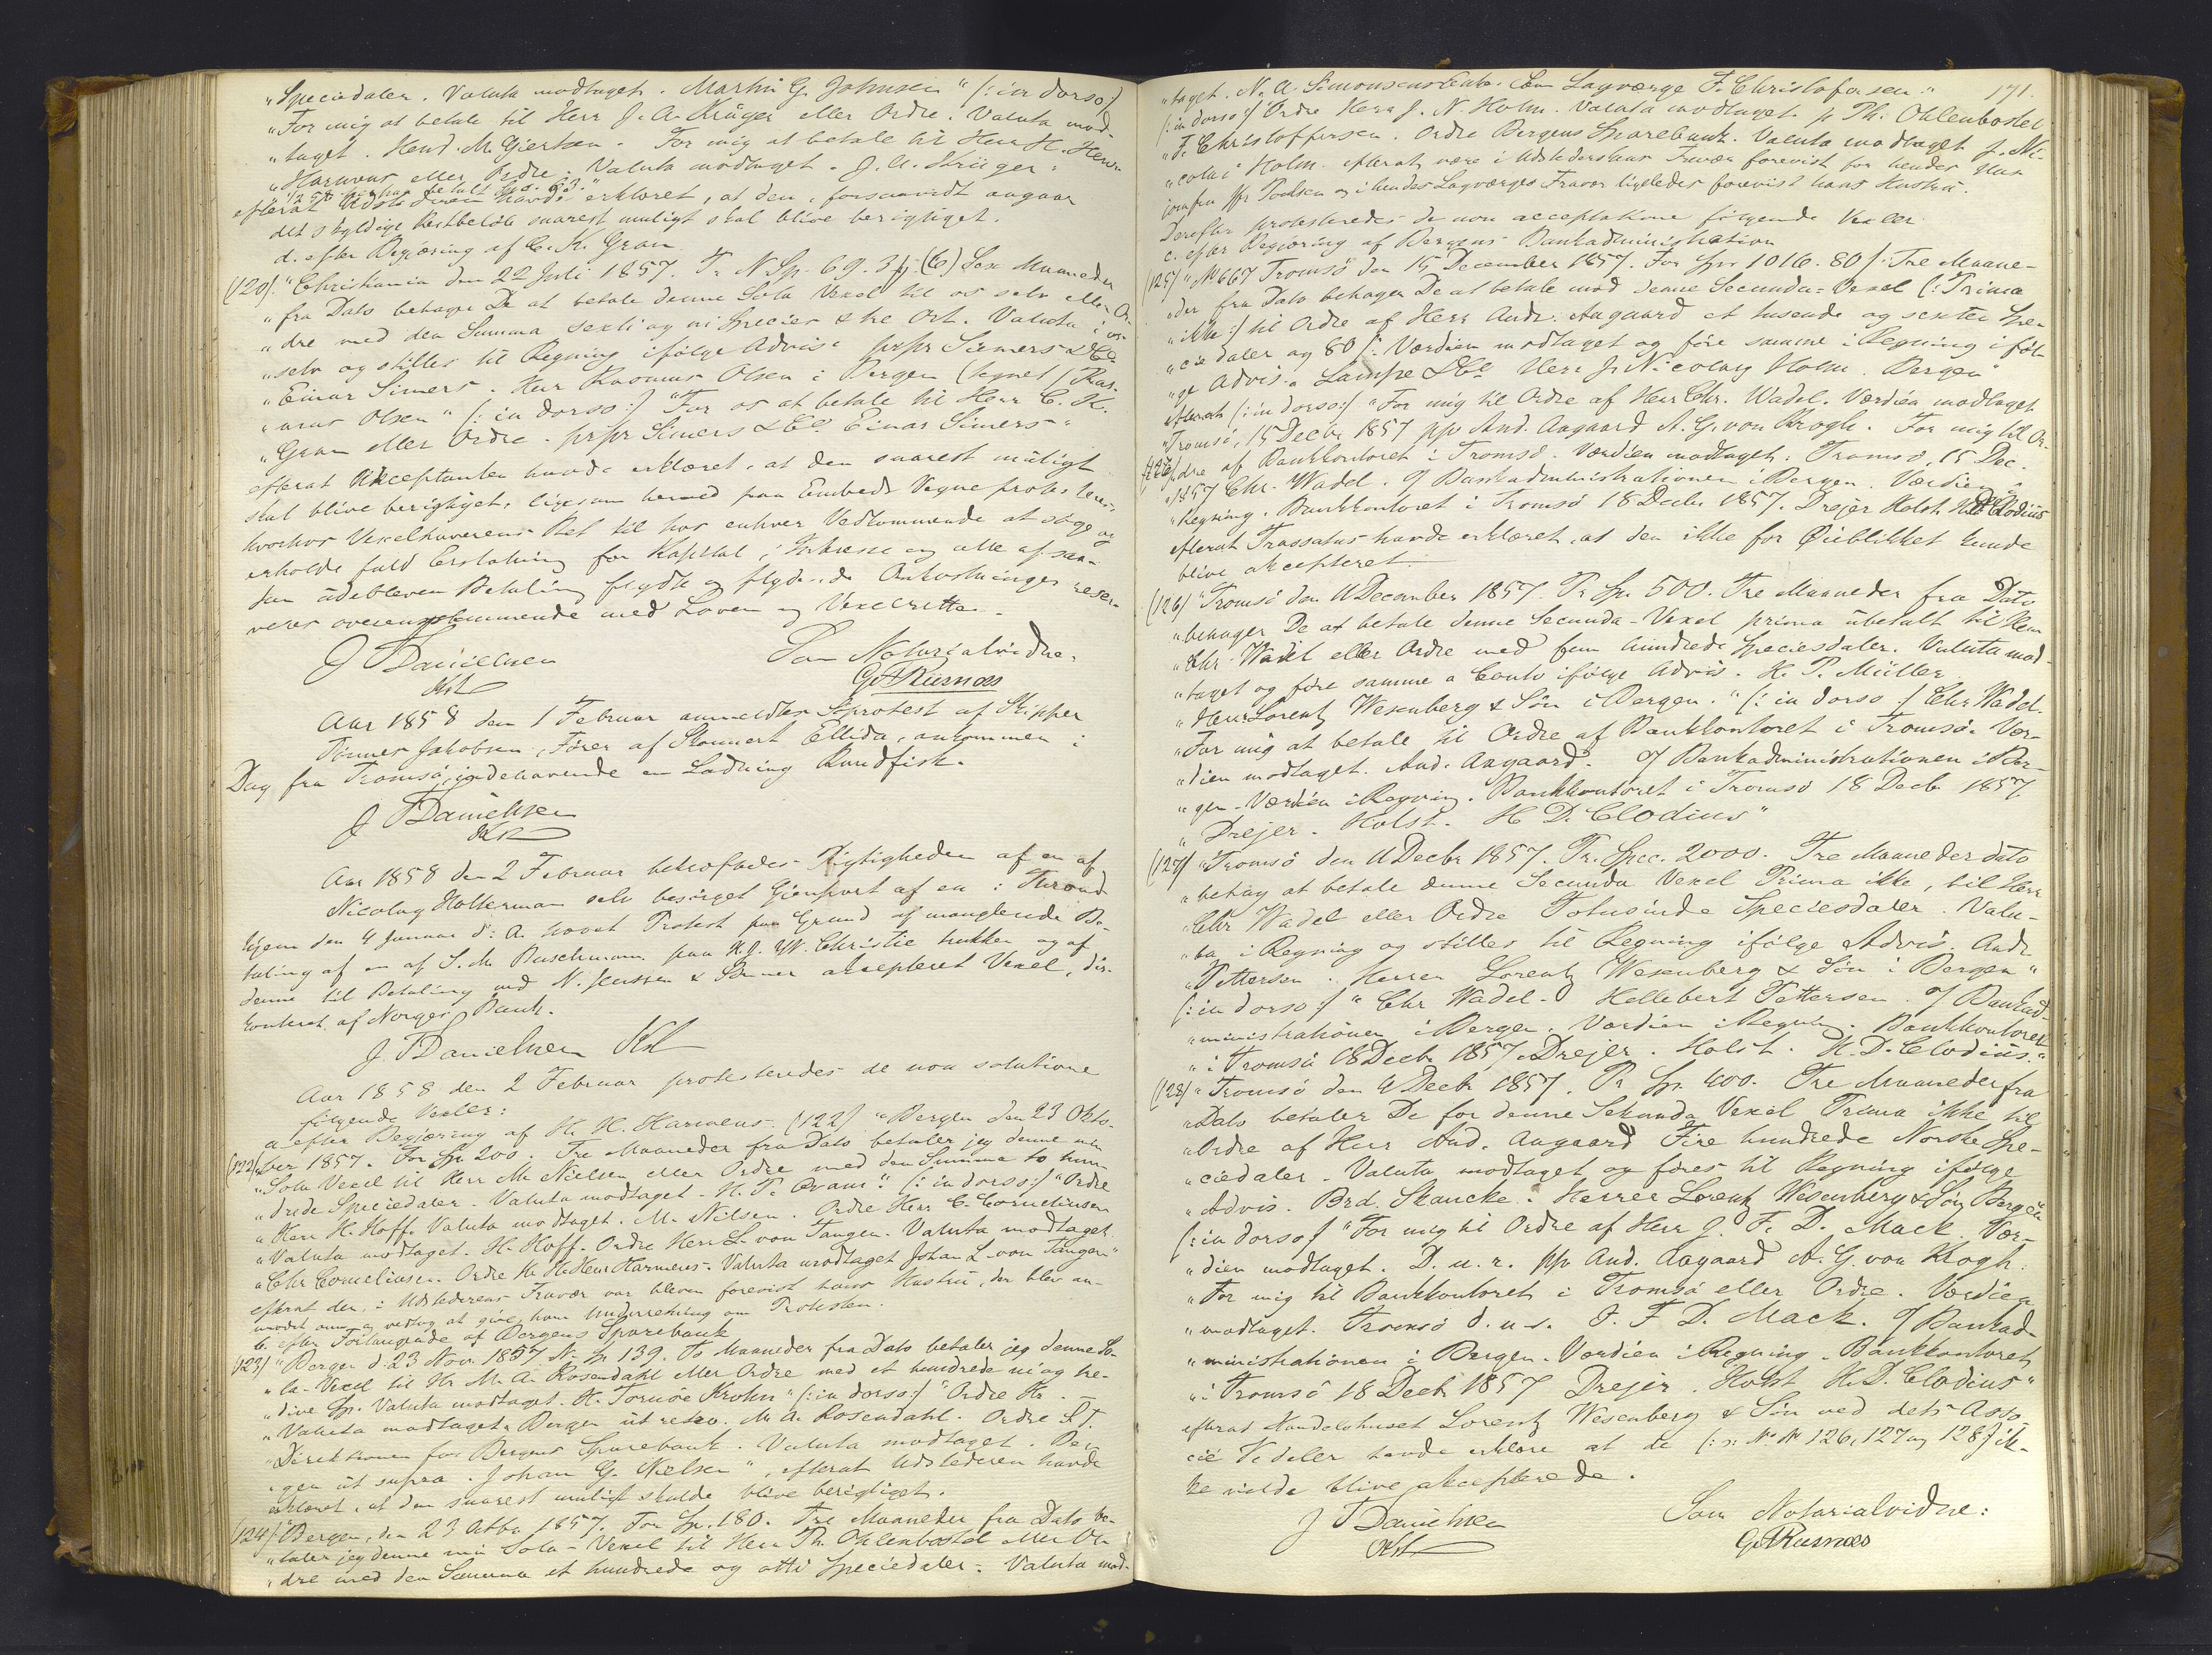 "Speciedaler. Valuta modtaget. Martin G. Johnsen" (: in dorso:)
"For mig at betale til Herr J. A. Krüger eller Ordre. Valuta mod-
"taget. Hend. M. Giertsen. For mig at betale til Herr H. Henr.
"Harmens eller Ordre. Valuta modtaget. J. A. Krüger.
efterat Udstederen havde erklæret, at den, forsaavidt angaar
det skyldige Restbeløb snarest muligt skal blive berigtiget.
d. efter Begjæring af C. K. Gran
(120). "Christiania den 22 Juli 1857. Pr. N. Sp. 69. 3 (6) Sex Maaneder
"fra Dato behage De at betale denne Sola Vexel til os selv eller Or-
"dre med den Summa sexti og ni Species & tre Ort. Valuta i os
"selv og stilles til Regning ifølge Advis. pr pr Siemers & Co
"Einar Simers. Herr Rasmus Olsen i Bergen (tegnet) Ras-
"mus Olsen" (: in dorso:) "For os at betale til Herr C. K.
"Gran eller Ordre. pr pr Simers & Co. Einar Simers"
efterat Akceptanten havde erklæret, at den snarest muligt
skal blive berigtiget, ligesom hermed paa Embeds Vegne protesteres,
hvorhos Vexelhaverens Ret til hos enhver Vedkommende at søge og
erholde fuld Erstatning for Kapital, Interesse og alle af saa-
dan udebleven Betaling flydte og flydende Omkostninger reser-
veres overensstemmende med Loven og Vexelretten.
J Danielsen
Kst
Som Notarialvidne:
G. A. Riisnæs
Aar 1858 den 1 Februar anmeldtes Søprotest af Skipper
Tønnes Jakobsen, Fører af Skonnert Ellida, ankommen i
Dag fra Tromsø, indehavende en Ladning Rundfisk.
J Danielsen
Kst
Aar 1858 den 2 Februar bekræftedes Rigtigheden af en af
Nicolay Holterman selv besørget Gjenpart af en i Thrond-
hjem den 4 Januar d. A. hævet Protest paa Grund af manglende Be-
taling af en af S. M. Buschmann paa H. J. W. Christie trukken og af
denne til Betaling ved N. Jenssen & Sønner aksepteret Vexel, dis-
konteret af Norges Bank.
J. Danielsen Kst
Aar 1858 den 2 Februar protesteredes de non solutione
følgende Vexler:
a. efter Begjæring af Hr. H. Harmens. (122) "Bergen den 23 Okto-
(122) "ber 1857. For Sp. 200. Tre Maaneder fra Dato betaler jeg denne min
"Sola Vexel til Herr M. Nielsen eller Ordre med den Summa to hun-
"drede Speciedaler. Valuta modtaget. H. P. Evans." (: in dorso:) "Ordre
"Herr H. Hoff. Valuta modtaget. M. Nilsen. Ordre Herr C. Corneliusen
"Valuta modtaget. H. Hoff. Ordre Herr L. von Tangen. Valuta modtaget
"Chr Corneliusen. Ordre Hr. H. Henr Harmens. Valuta modtaget Johan L. von Tangen"
efterat den, i Udstederens Fravær var bleven forevist hans Hustru, der blev an-
modet om og vedtog at give ham Underretning om Protesten.
b. efter Forlangende af Bergens Sparebank
(123) "Bergen d. 23 Nov. 1857 N. Sp. 139. To Maaneder fra Dato betaler jeg denne So-
"la-Vexel til Hr. M. A. Rosendahl eller Ordre med et hundrede ni og tre-
"dive Sp. Valuta modtaget. H. Tornöe Krohn" (: in dorso:) "Ordre Hr.
"Valuta modtaget. Bergen ut retro. M. A. Rosendahl. Ordre S. T.
"Direktionen for Bergens Sparebank. Valuta modtaget. Ber-
"gen ut supra. Johan G. Nielsen", efterat Udstederen havde
erklæret, at den snarest muligt skulde blive berigtiget.
(124) "Bergen, den 23 Octbr 1857. For Sp. 180. Tre Maaneder fra Dato be-
"taler jeg denne min Sola-Vexel til Herr Th. Ohlenbostel eller Or-
"dre med den Summa et hundrede og otti Speciedaler. Valuta mod-
171.
"taget. N. A. Simonsens Enke. Som Lagværge F. Christofersen."
(: in dorso:) "Ordre Herr J. N. Holm. Valuta modtaget p Th. Ohlenbostel
"F. Christoffersen. Ordre Bergens Sparebank. Valuta modtaget J. Ni-
"colai Holm. efterat være i Udstederskens Fravær forevist for hendes Hus-
jomfru Jfr Poulsen og i hendes Lagværges Fravær ligeledes forevist hans Hustru.
Derefter protesteredes de non acceptatione følgende Vexler
c. efter Begjæring af Bergens Bankadministration
(125) "No 667 Tromsö den 15 December 1857. For Sp. 1016. 80 ſ. Tre Maane-
"der fra Dato behager De at betale mod denne Secunda-Vexel (: Prima
"ikke:) til Ordre af Herr Andr. Aagaard et tusende og sexten Spe-
"ciedaler og 80 ſ. Værdien modtaget og före samme i Regning iföl-
"ge Advis. Lampe & Co. Herr J. Nicolay Holm. Bergen"
efterat (: in dorso:) "For mig til Ordre af Herr Chr. Wadel. Værdien modtaget
"Tromsö, 15 Decbr 1857 pp And. Aagaard A. G. von Krogh. For mig til Or-
"dre af Bankkontoret i Tromsö. Værdien modtaget. Tromsö, 15 Dec.
"1857 Chr. Wadel. O/ Bankadministrationen i Bergen. Værdien i
"Regning. Bankkontoret i Tromsö 18 Decbr 1857. Drejer Holst H. D. Clodius
efterat Trassatus havde erklæret, at den ikke for Øieblikket kunde
blive akcepteret.
(126) "Tromsö den 11 December 1857. Pr. Sp. 500. Tre Maaneder fra Dato
"behager De at betale denne Secunda-Vexel prima ubetalt til Herr
"Chr. Wadel eller Ordre med fem hundrede Speciesdaler. Valuta mod-
"taget og före samme a Conto ifölge Advis. H. P. Müller
"Herr Lorentz Wesenberg & Sön i Bergen." (: in dorso:) Chr Wadel.
"For mig at betale til Ordre af Bankkontoret i Tromsö. Vær-
"dien modtaget. And. Aagaard. O/ Bankadministrationen i Ber-
"gen. Værdien i Regning. Bankkontoret i Tromsö 18 Decbr 1857
"Drejer. Holst. H. D. Clodius"
(127) "Tromsö den 11 Decbr 1857. Pr. Spec. 2000. Tre Maaneder dato
"behag at betale denne Secunda Vexel Prima ikke, til Herr
"Chr Wadel eller Ordre Totusinde Speciesdaler. Valu-
"ta i Regning og stilles til Regning ifölge Advis. Andr.
"Pettersen. Herrer Lorentz Wesenberg & Sön i Bergen"
(: in dorso:) "Chr Wadel. Hellebert Pettersen. O/ Bankad-
"ministrationen i Bergen. Værdien i Regning. Bankkontoret
"i Tromsö 18 Decbr 1857. Drejer. Holst. H. D. Clodius."
(128) "Tromsö den 4 Decbr 1857. Pr Sp. 400. Tre Maaneder fra
"Dato betaler De for denne Sekunda Vexel Prima ikke til
"Ordre af Herr And. Aagaard Fire hundrede Norske Spe-
"ciedaler. Valuta modtaget og föres til Regning ifölge
"Advis. Brd. Skancke. Herrer Lorentz Wesenberg & Sön Bergen
(: in dorso:) "For mig til Ordre af Herr J. F. D. Mack. Vær-
"dien modtaget. D. u. r. pp And. Aagaard A. G. von Krogh.
"For mig til Bankkontoret i Tromsö eller Ordre. Værdien
"modtaget. Tromsö d. u. s. J. F. D. Mack. O/ Bankad-
"ministrationen i Bergen. Værdien i Regning. Bankkontoret
"i Tromsö 18 Decbr 1857 Drejer. Holst H. D. Clodius"
efterat Handelshuset Lorentz Wesenberg & Sön ved dets Asso-
cié Vedeler havde erklære at de (: No No 126, 127 og 128:) ik-
ke vilde blive akcepterede.
J Danielsen
Kst
Som Notarialvidne:
G. A. Riisnæs